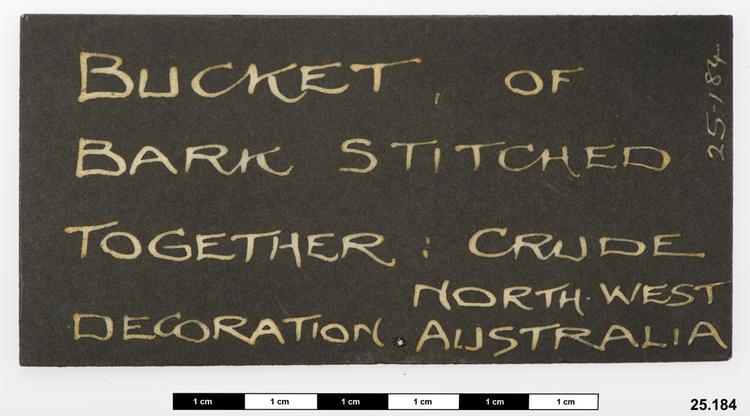 BUCKET, OF
BARK STITCHED
TOGETHER : CRUDE
DECORATION
NORTH·WEST
AUSTRALIA
25-184
1 cm 1 cm 1 cm 1 cm 1 cm 1 cm
25.184